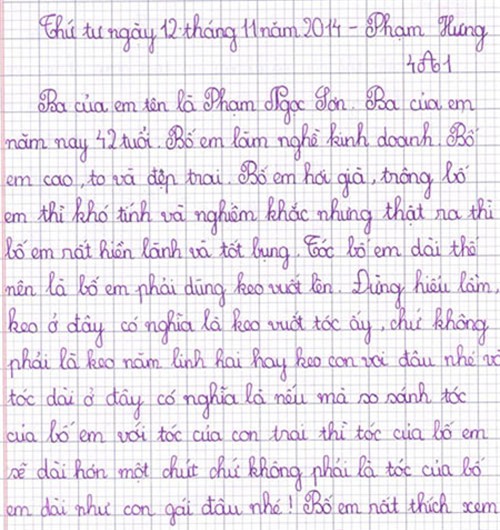 Thứ tư ngày 12 tháng 11 năm 2014 - Phạm Hưng
4A1
Ba của em tên là Phạm Ngọc Sơn. Ba của em
năm nay 42 tuổi. Bố em làm nghề kinh doanh. Bố
em cao, to và đẹp trai. Bố em hơi già, trông bố
em thì khó tính và nghiêm khắc nhưng thật ra thì
bố em nất hiền lành và tốt bụng. Tóc bố em dài thế
nên là bố em phải dùng keo vuốt lên. Đừng hiểu lầm,
keo ở đây có nghĩa là keo vuốt tóc ấy, chứ không
phải là keo năm linh hai hay keo con voi đâu nhé và
tóc dài ở đây có nghĩa là nếu mà so sánh tóc
của bố em với tóc của con trai thì tóc của bố em
sẽ dài hơn một chút chứ không phải là tóc của bố
em dài như con gái đâu nhé! Bố em nất thích xem